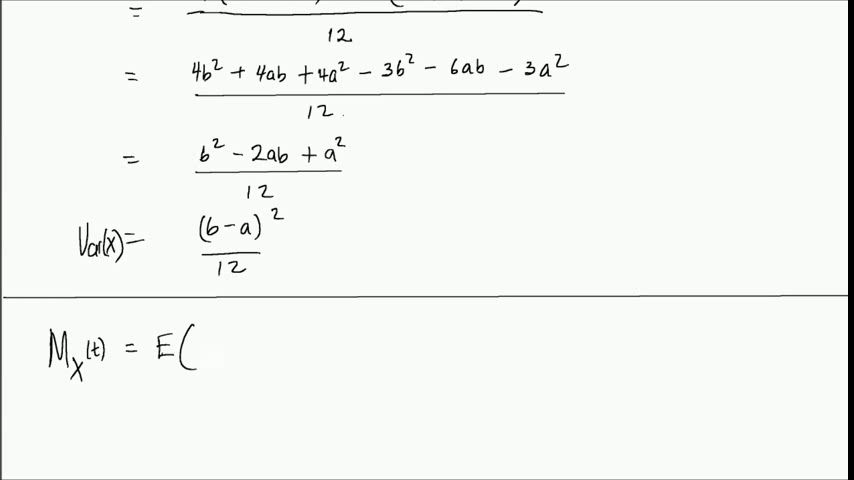 =
12
= 4b² + 4ab + 4a² - 3b² - 6ab - 3a²
12
= b² - 2ab + a²
12
Var(x) = (b-a)²
12
M_X(t) = E(